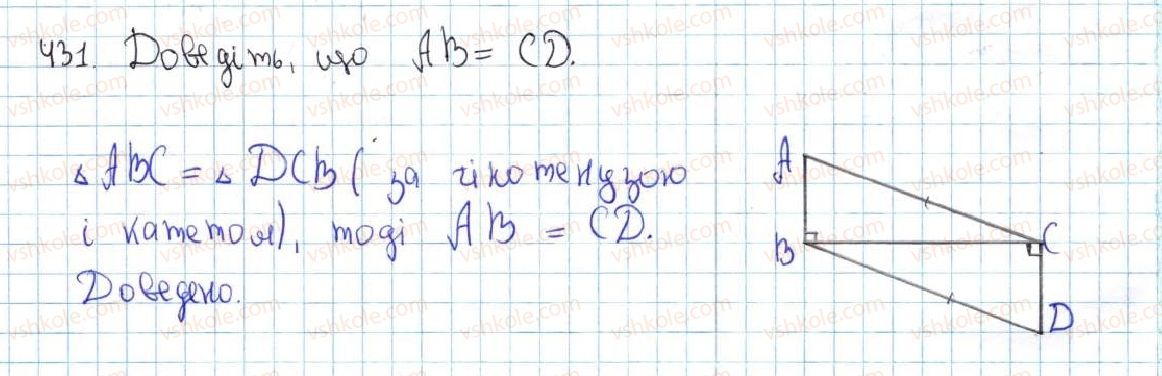 431. Доведіть, що AB = CD.
△ ABC = △ DCB ( за гіпотенузою
і катетом), тоді AB = CD.
Доведено.
A
B
C
D
vshkole.com